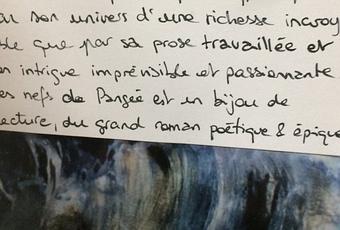 son univers d'une richesse incroy
que par sa prose travaillée et
intrigue imprévisible et passionnante
es nefs de Pangée est un bijou de
ecture, du grand roman poétique & épique